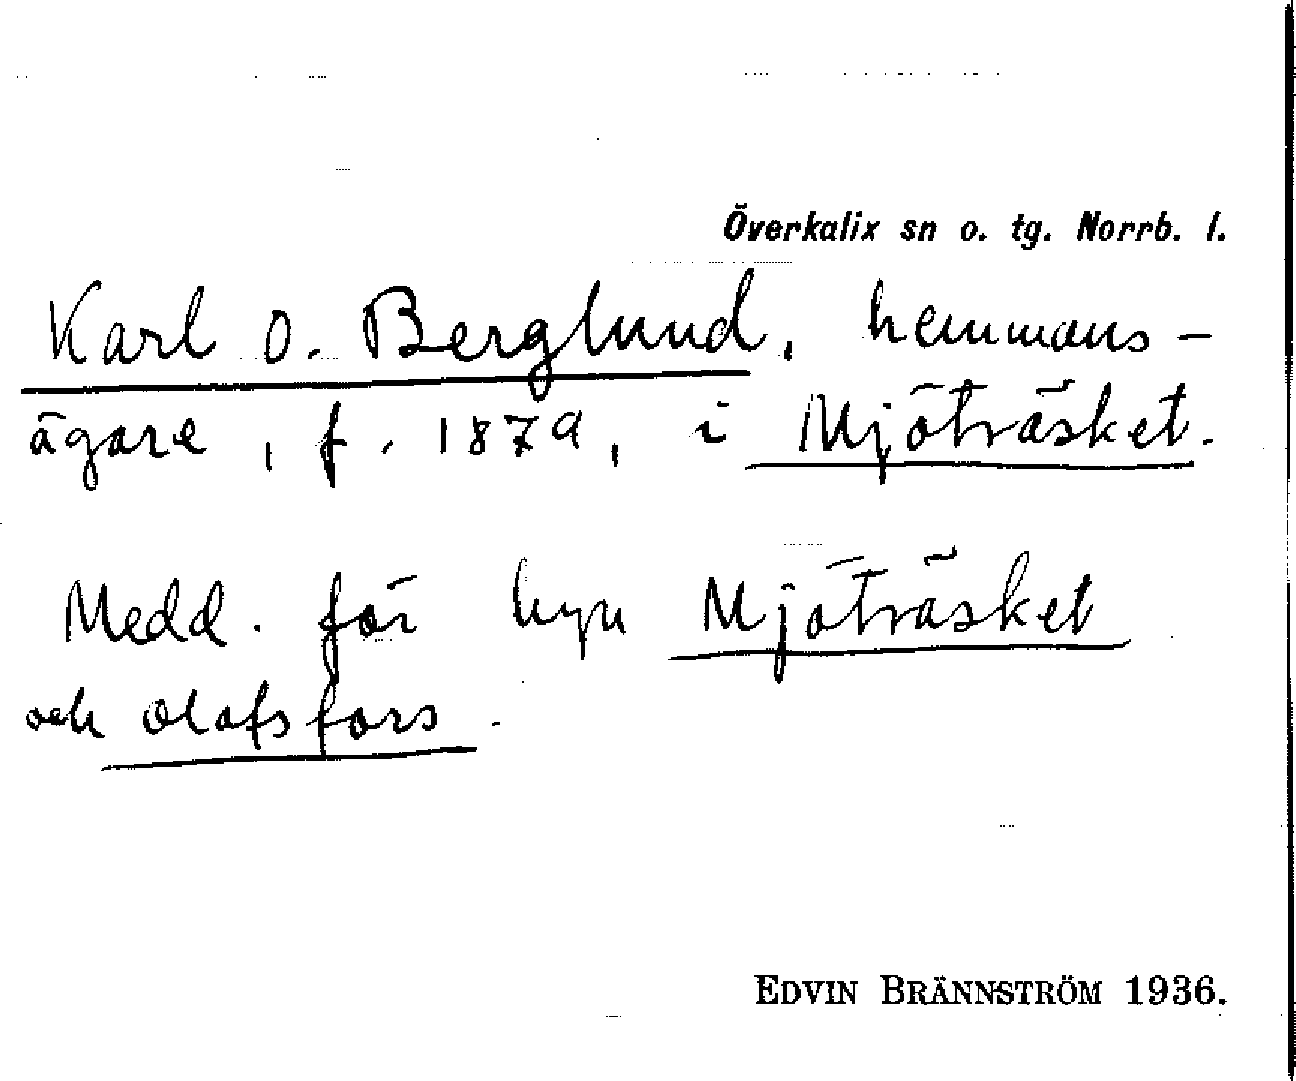 Överkalix sn o. tg. Norrb. l.
Karl O. Berglund, hemmans-
ägare, f. 1879, i Mjöträsket.
Medd. för byn Mjöträsket
och Olofsfors.
EDVIN BRÄNNSTRÖM 1936.